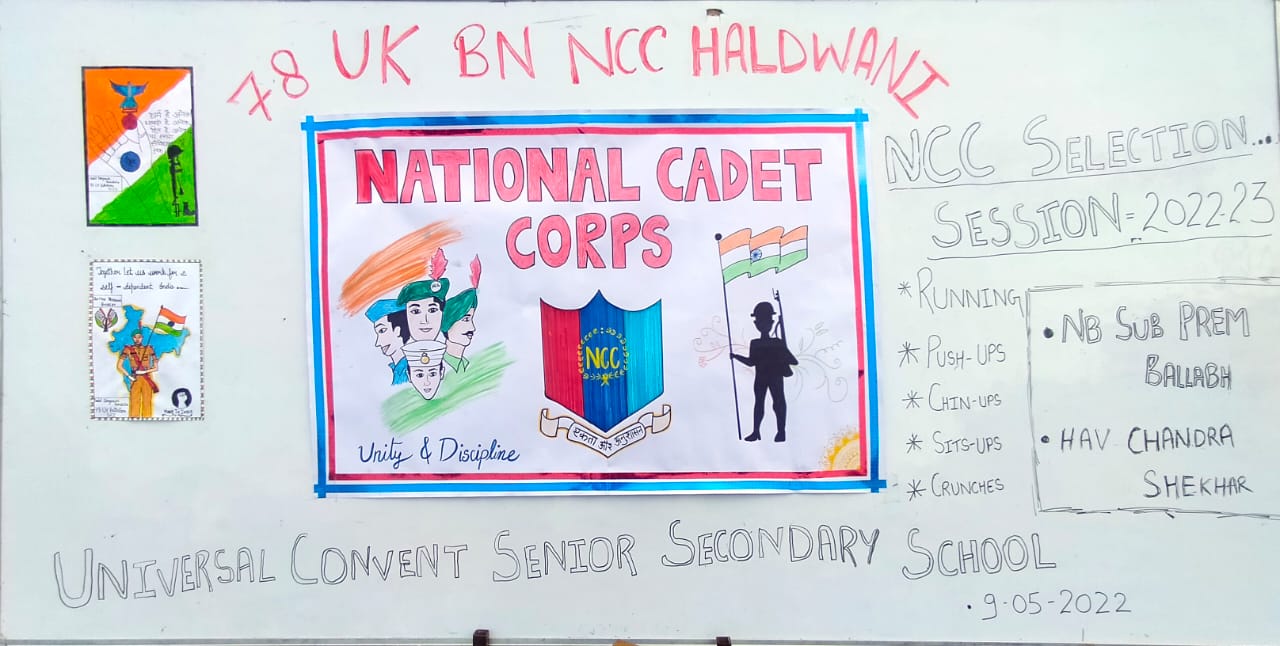 78 UK BN NCC HALDWANI
NATIONAL CADET
CORPS
NCC
एकता और अनुशासन
Unity & Discipline
Together let us work for a
self - dependent India
NCC SELECTION...
SESSION=2022-23
* RUNNING
* PUSH-UPS
* CHIN-UPS
* SITS-UPS
* CRUNCHES
• NB SUB PREM
BALLABH
• HAV CHANDRA
SHEKHAR
UNIVERSAL CONVENT SENIOR SECONDARY SCHOOL
• 9-05-2022